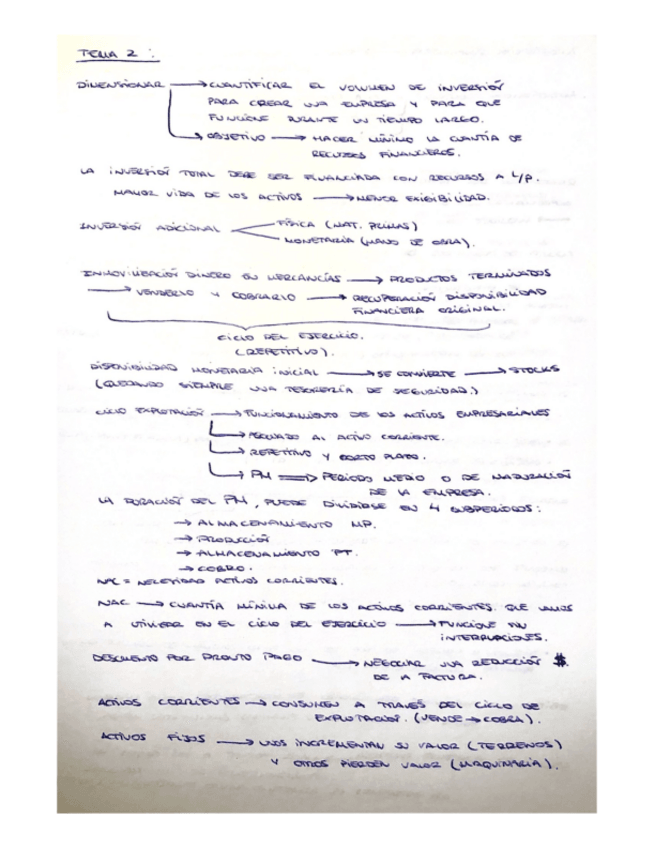 TEMA 2 :
DIMENSIONAR → CUANTIFICAR EL VOLUMEN DE INVERSIÓN
PARA CREAR UNA EMPRESA Y PARA QUE
FUNCIONE DURANTE UN TIEMPO LARGO.
→ OBJETIVO → HACER MÍNIMO LA CUANTÍA DE
RECURSOS FINANCIEROS.
LA INVERSIÓN TOTAL DEBE SER FINANCIADA CON RECURSOS A L/P.
MAYOR VIDA DE LOS ACTIVOS → MENOR EXIGIBILIDAD.
INVERSIÓN ADICIONAL FÍSICA (MAT. PRIMAS)
MONETARIA (MANO DE OBRA).
INMOVILIZACIÓN DINERO EN MERCANCÍAS → PRODUCTOS TERMINADOS
→ VENDERLO Y COBRARLO → RECUPERACIÓN DISPONIBILIDAD
FINANCIERA ORIGINAL.
CICLO DEL EJERCICIO.
(REPETITIVO).
DISPONIBILIDAD MONETARIA INICIAL → SE CONVIERTE → STOCKS
(QUEDANDO SIEMPRE UNA TESORERÍA DE SEGURIDAD.)
CICLO EXPLOTACIÓN → FUNCIONAMIENTO DE LOS ACTIVOS EMPRESARIALES
→ AL ACTIVO CORRIENTE.
→ REPETITIVO Y CORTO PLAZO.
→ PM ⇒ PERIODO MEDIO O DE MADURACIÓN
DE LA EMPRESA.
LA DURACIÓN DEL PM, PUEDE DIVIDIRSE EN 4 SUBPERIODOS:
→ ALMACENAMIENTO MP.
→ PRODUCCIÓN
→ ALMACENAMIENTO PT.
→ COBRO.
NAC = NECESIDAD ACTIVOS CORRIENTES.
NAC → CUANTÍA MÍNIMA DE LOS ACTIVOS CORRIENTES QUE VAMOS
A UTILIZAR EN EL CICLO DEL EJERCICIO → FUNCIONE SIN
INTERRUPCIONES.
DESCUENTO POR PRONTO PAGO → NEGOCIAR UNA REDUCCIÓN $
DE LA FACTURA.
ACTIVOS CORRIENTES → CONSUMEN A TRAVÉS DEL CICLO DE
EXPLOTACIÓN. (VENDE → COBRA).
ACTIVOS FIJOS → UNOS INCREMENTAN SU VALOR (TERRENOS)
Y OTROS PIERDEN VALOR (MAQUINARIA).